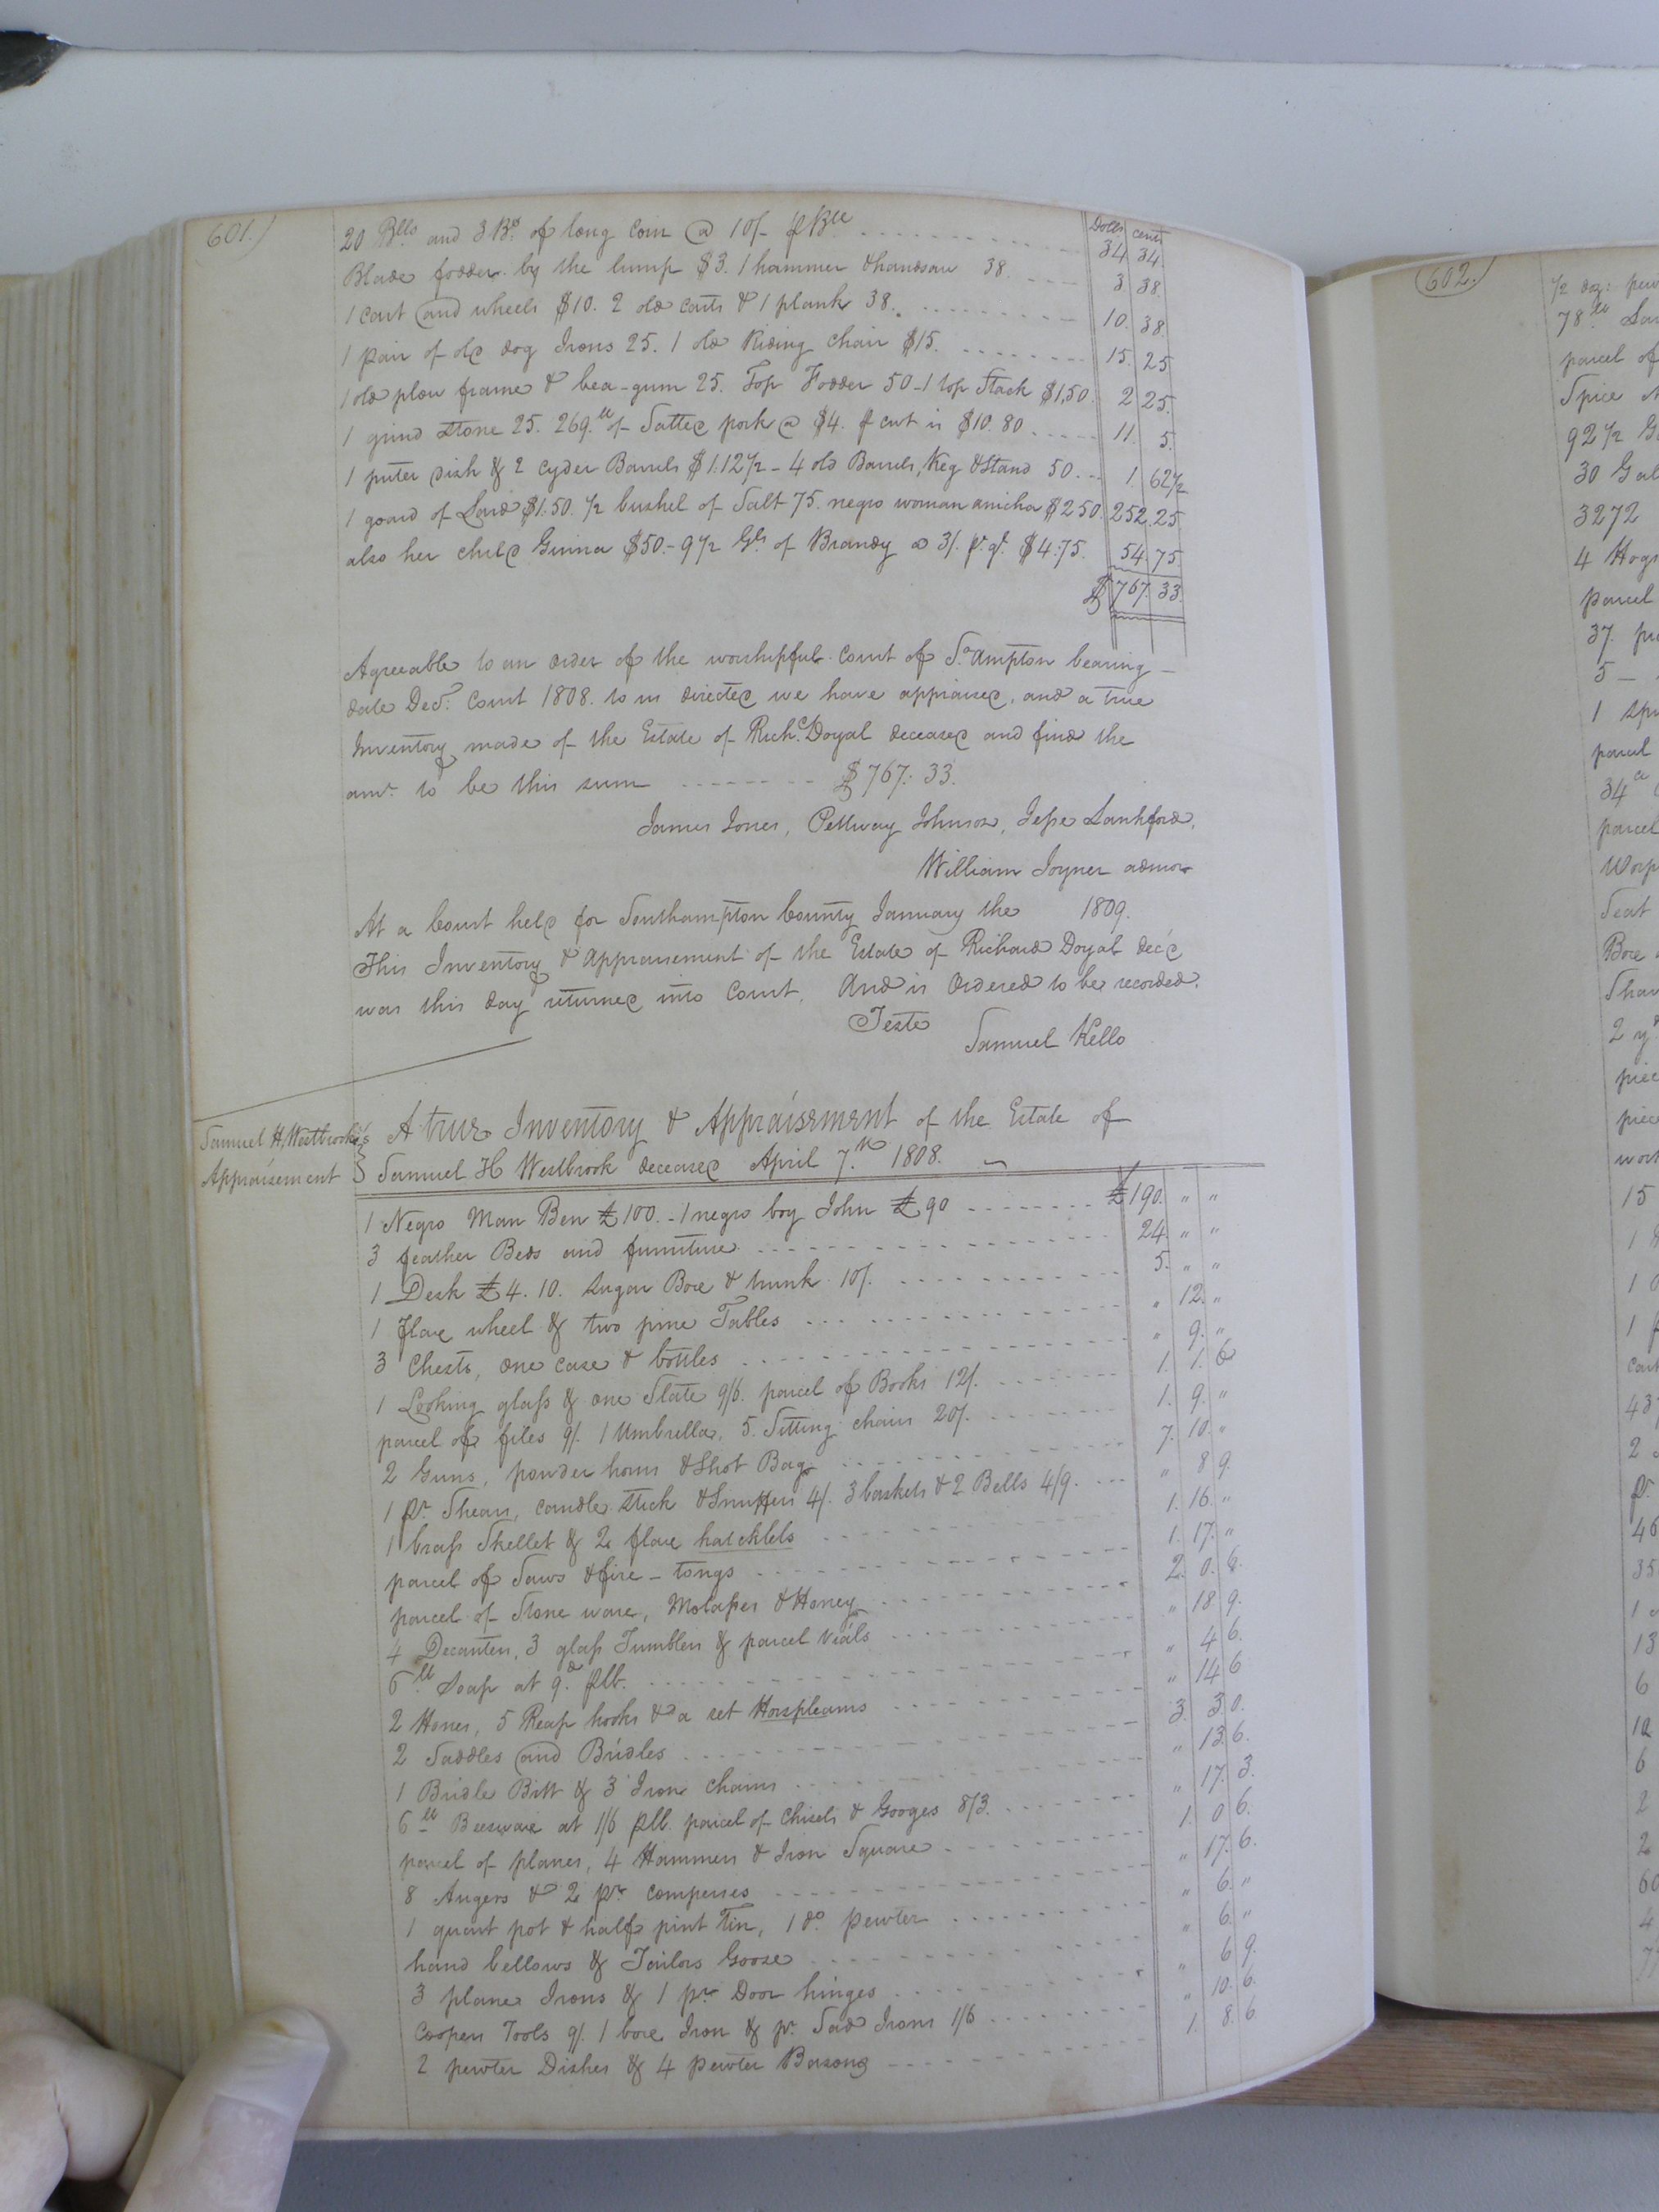 601.)
Dolls cents
20 Blls and 3 Bs. of long Corn @ 10/- ⅌ Bll 34 34
Blade fodder by the lump $3. 1 hammer & handsaw 38. 3 38.
1 Cart and wheels $10. 2 old carts & 1 plank 38. 10. 38
1 pair of old dog Irons 25. 1 old Riding Chair $15. 15. 25
1 old plow frame & bea-gum 25. Top Fodder 50-1 top Stack $1,50. 2 25.
1 grind stone 25. 269. ll of Satted pork @ $4. ⅌ cwt is $10.80 11. 5.
1 puter dish & 2 Cyder Barrels $1.12½ - 4 old Barrels, Keg & Stand 50. 1 62½
1 goard of Lard $1.50. ½ bushel of Salt 75. negro woman anicha $250. 252. 25
also her child Guinea $50.- 9½ Gls of Brandy @ 3/. pr. gl. $4.75. 54. 75.
$ 767. 33.
Agreeable to an order of the worshipful Court of So.ampton bearing
date Decr. Court 1808. to us directed we have appraised, and a true
Inventory made of the Estate of Richd. Doyal deceased and find the
amt. to be this sum $767. 33.
James Jones, Pettway Johnson, Jesse Lankford,
William Joyner admor
At a Court held for Southampton County January the 1809.
This Inventory & Appraisement of the Estate of Richard Doyal dec'd
was this day returned into Court, And is Ordered to be recorded.
Teste
Samuel Kello
Samuel H, Westbrook's
Appraisement
A true Inventory & Appraisement of the Estate of
Samuel H Westbrook deceased April 7.th 1808.
1 Negro Man Ben £100. - 1 negro boy John £90 £190. " "
3 feather Beds and furniture 24. " "
1 Desk £4. 10. Sugar Box & trunk 10/. 5. " "
1 flax wheel & two pine Tables " 12. "
3 Chests, one case & bottles " 9. "
1 Looking glass & one Slate 9/6. parcel of Books 12/. 1. 1. 6
parcel of files 9/. 1 Umbrella, 5. Sitting chairs 20/. 1. 9. "
2 Guns, powder horns & Shot Bags 7. 10. "
1 pr. Shears, candle stick & Snuffers 4/. 3 baskets & 2 Bells 4/9. " 8 9.
1 brass Skellet & 2 flax hatchkels 1. 16. "
parcel of Saws & fire-tongs 1. 17. "
parcel of Stone ware, Molasses & Honey 2. 0. 6.
4 Decanters, 3 glass Tumblers & parcel Vials " 18 9.
6 ll Soap at 9.d ⅌lb. " 4 6.
2 Hones, 5 Reap hooks & a set Horspleams " 14 6
2 Saddles and Bridles 3. 3. 0.
1 Bridle Bitt & 3 Iron Chains " 13. 6.
6 ll Beeswax at 1/6 ⅌lb. parcel of Chisels & Googes 8/3. " 17. 3.
parcel of planes, 4 Hammers & Iron Square 1. 0 6.
8 Augers & 2 pr. compesses " 17. 6.
1 quart pot & half pint Tin, 1 do. pewter " 6. "
hand bellows & Tailors Goose " 6. "
3 plane Irons & 1 pr. Door hinges " 6 9.
Coopers Tools 9/. 1 box Iron & pr. Sad Irons 1/6 " 10. 6.
2 pewter Dishes & 4 pewter Basons 1. 8. 6
602.)
½ doz: pew
78 ll
parcel of
Spice
92½
30 Gal
3272
4 Hogs
parcel
37.
5 -
1
parcel
34
parcel
Seat
Box
2
piec
piec
15
1
1
1
43
2
pr.
46
35
1
13
6
12
6
2
2
60
4